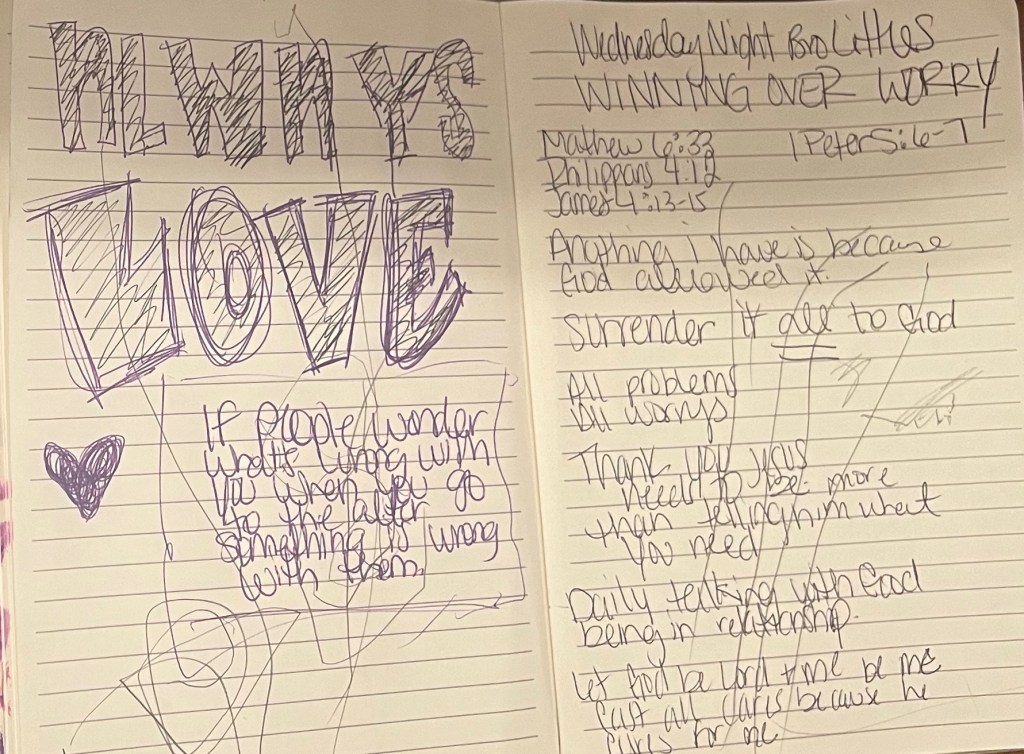 ALWAYS
LOVE
If people wonder
what's wrong with
you when you go
to the alter
something is wrong
with them.
Wednesday Night Bro Littles
WINNING OVER WORRY
Mathew 6:33 1 Peter 5:6-7
Philippans 4:12
James 4:13-15
Anything i have is because
God allowed it.
Surrender it all to God
All problems
All worrys
Thank you
needs to be more
than telling him what
you need
Daily talking with God
being in relationship.
Let God be Lord + me be me
Cast all cares because he
cares for me